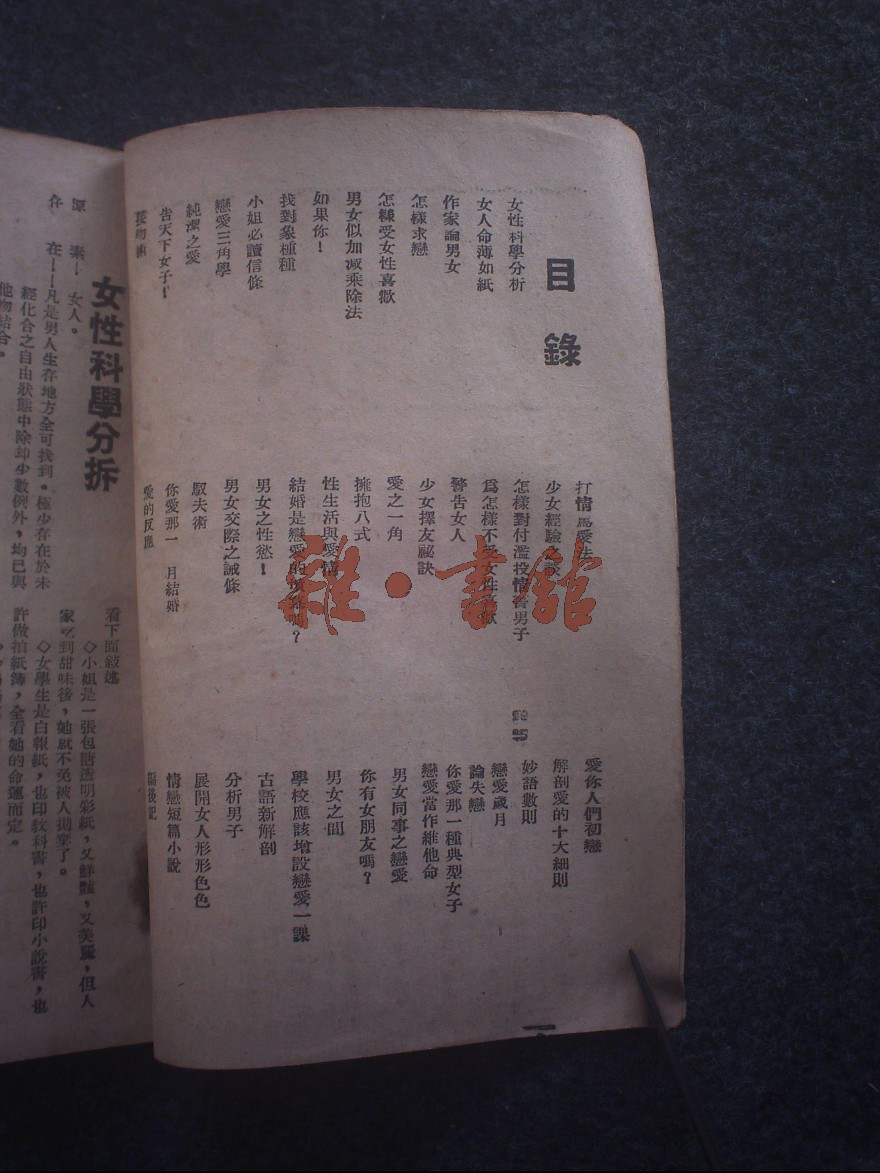 目錄
女性科學分析
女人命薄如紙
作家論男女
怎樣求戀
怎樣受女性喜歡
男女似加减乘除法
如果你！
找對象種種
小姐必讀信條
戀愛三角學
純潔之愛
告天下女子！
接吻術
打情爲愛法
少女經驗之談
怎樣對付濫投情書男子
爲怎樣不受女性喜歡
警告女人
少女擇友祕訣
愛之一角
擁抱八式
性生活與愛情
結婚是戀愛的墳墓嗎？
男女之性慾！
男女交際之誡條
馭夫術
你愛那一 月結婚
愛的反應
愛你人們初戀
解剖愛的十大細則
妙語數則
戀愛歲月
論失戀
你愛那一種典型女子
戀愛當作維他命
男女同事之戀愛
你有女朋友嗎？
男女之間
學校應該增設戀愛一課
古語新解剖
分析男子
展開女人形形色色
情戀短篇小說
編後記
雜·書館
女性科學分拆
原 素—女人。
存 在——凡是男人生存地方全可找到。極少存在於未
經化合之自由狀態中除却少數例外，均已與
他物結合。
看下面敍述
◇小姐是一張包糖透明彩紙，又鮮豔，又美麗，但人
家吃到甜味後，她就不免被人拋棄了。
◇女學生是白報紙，也印教科書，也許印小說書，也
許做拍紙簿，全看她的命運而定。